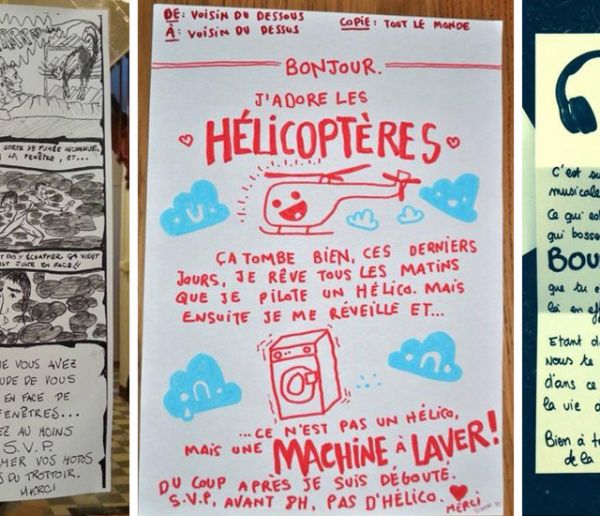 SORTE DE FUMÉE INCONNUE,
LA FENÊTRE, ET...
ÉCHAPPER. ÇA VIENT
EST JUSTE EN FACE!!
VOUS AVEZ
DE VOUS
EN FACE DE
FENÊTRES...
AU MOINS
S.V.P.
VOS MOTOS
DU TROTTOIR.
MERCI
DE: VOISIN DU DESSOUS
À: VOISIN DU DESSUS
COPIE: TOUT LE MONDE
BONJOUR.
J'ADORE LES
HÉLICOPTÈRES
ÇA TOMBE BIEN, CES DERNIERS
JOURS, JE RÊVE TOUS LES MATINS
QUE JE PILOTE UN HÉLICO. MAIS
ENSUITE JE ME RÉVEILLE ET...
...CE N'EST PAS UN HÉLICO,
MAIS UNE MACHINE À LAVER!
DU COUP APRÈS JE SUIS DÉGOUTÉ.
S.V.P, AVANT 8H, PAS D'HÉLICO.
MERCI
C'est
musicale
Ce qui
qui
que tu
là en
Etant
Nous te
d'ans ce
la vie
Bien à
de la